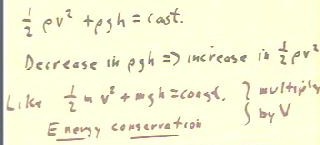 ½ ρv² + ρgh = cast.
Decrease in ρgh => increase in ½ ρv²
Like ½ m v² + mgh = const. } multiply by V
Energy conservation